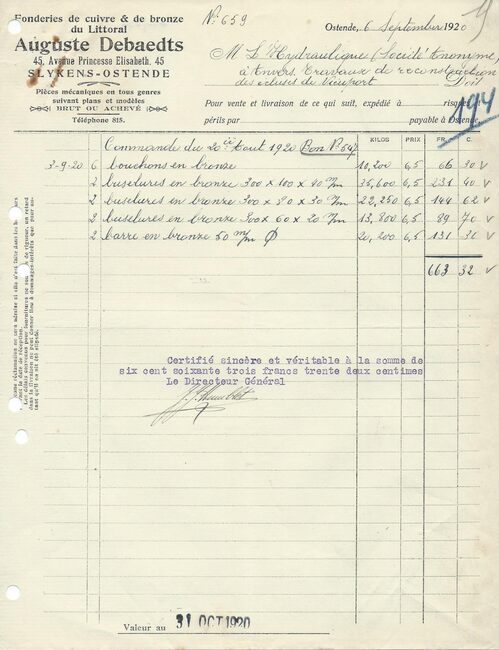 Fonderies de cuivre & de bronze
du Littoral
Auguste Debaedts
45, Avenue Princesse Elisabeth, 45
SLYKENS-OSTENDE
Pièces mécaniques en tous genres
suivant plans et modèles
BRUT OU ACHEVÉ
Téléphone 815.
N: 659
Ostende, 6 Septembre 1920
M L'Hydraulique (Société Anonyme)
à Anvers, Travaux de reconstruction
des écluses de Nieuport Doit
Pour vente et livraison de ce qui suit, expédié à risques
périls par payable à Ostende
194
KILOS PRIX FR. C.
Commande du 20 Août 1920 Bon N° 547
3-9-20 6 bouchons en bronze 10,200 6,5 66 30 V
2 buselures en bronze 300 x 100 x 40 m/m 35,600 6,5 231 40 V
2 buselures en bronze 300 x 80 x 30 m/m 22,250 6,5 144 62 V
2 buselures en bronze 300 x 60 x 20 m/m 13,800 6,5 89 70 V
2 barre en bronze 50 m/m Ø 20,200 6,5 131 30 V
663 32 V
Certifié sincère et véritable à la somme de
six cent soixante trois francs trente deux centimes
Le Directeur Général
Valeur au 31 OCT 1920